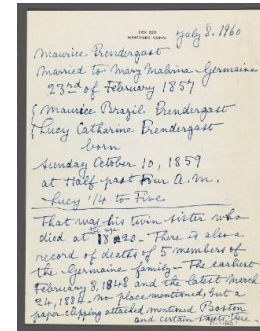 July 8. 1960
Maurice Prendergast
Married to Mary Malvina Germaine
23rd of February 1857
{ Maurice Brazil Prendergast
{ Lucy Catharine Prendergast
born
Sunday October 10, 1859
at Half past Four a.m.
Lucy 1/4 to Five
That was his twin sister who
died at the age 18-20 - There is also a
record of deaths of 5 members of
the Germaine family - The earliest
February 8, 1848 and the latest March
24, 1884. no place mentioned, but a
paper clipping attached mentioned Boston
and certain